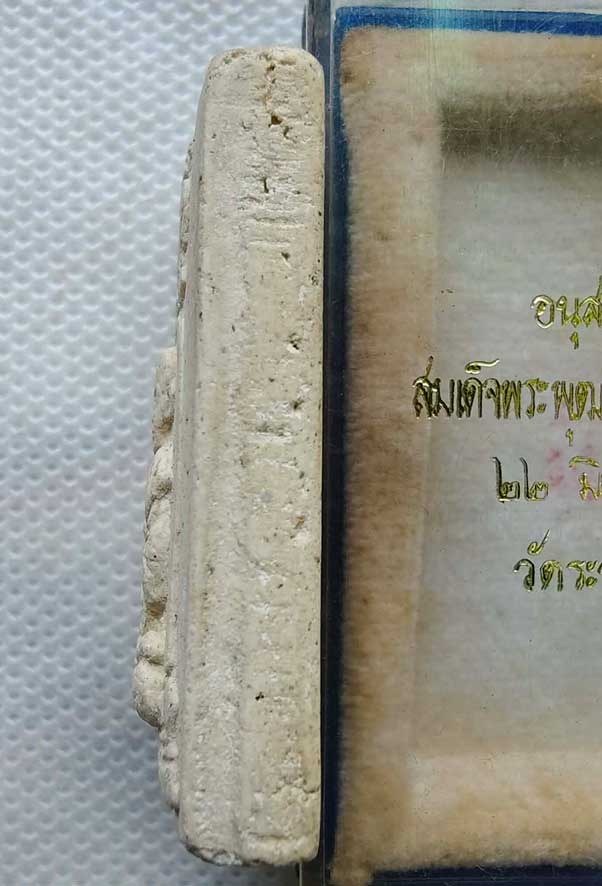 อนุส
สมเด็จพระพุฒ
๒๒ มิ
วัดระ